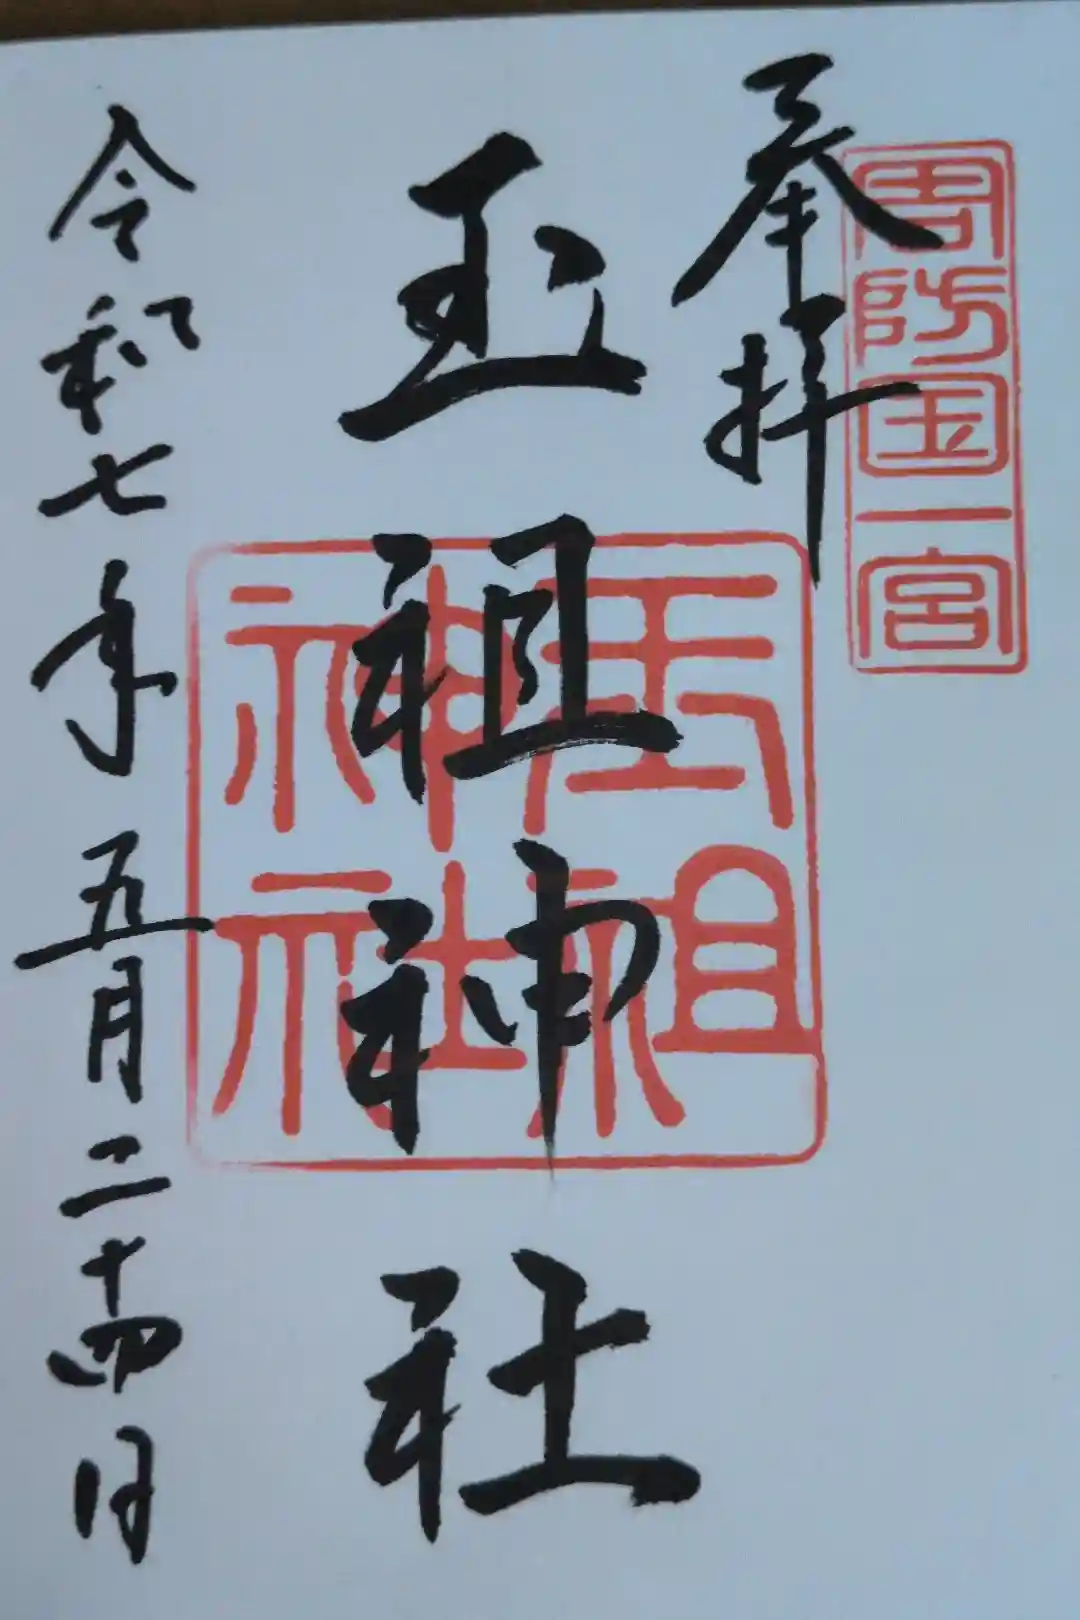 周防国一宮
奉拝
玉祖神社
玉祖
神社
令和七年五月二十四日